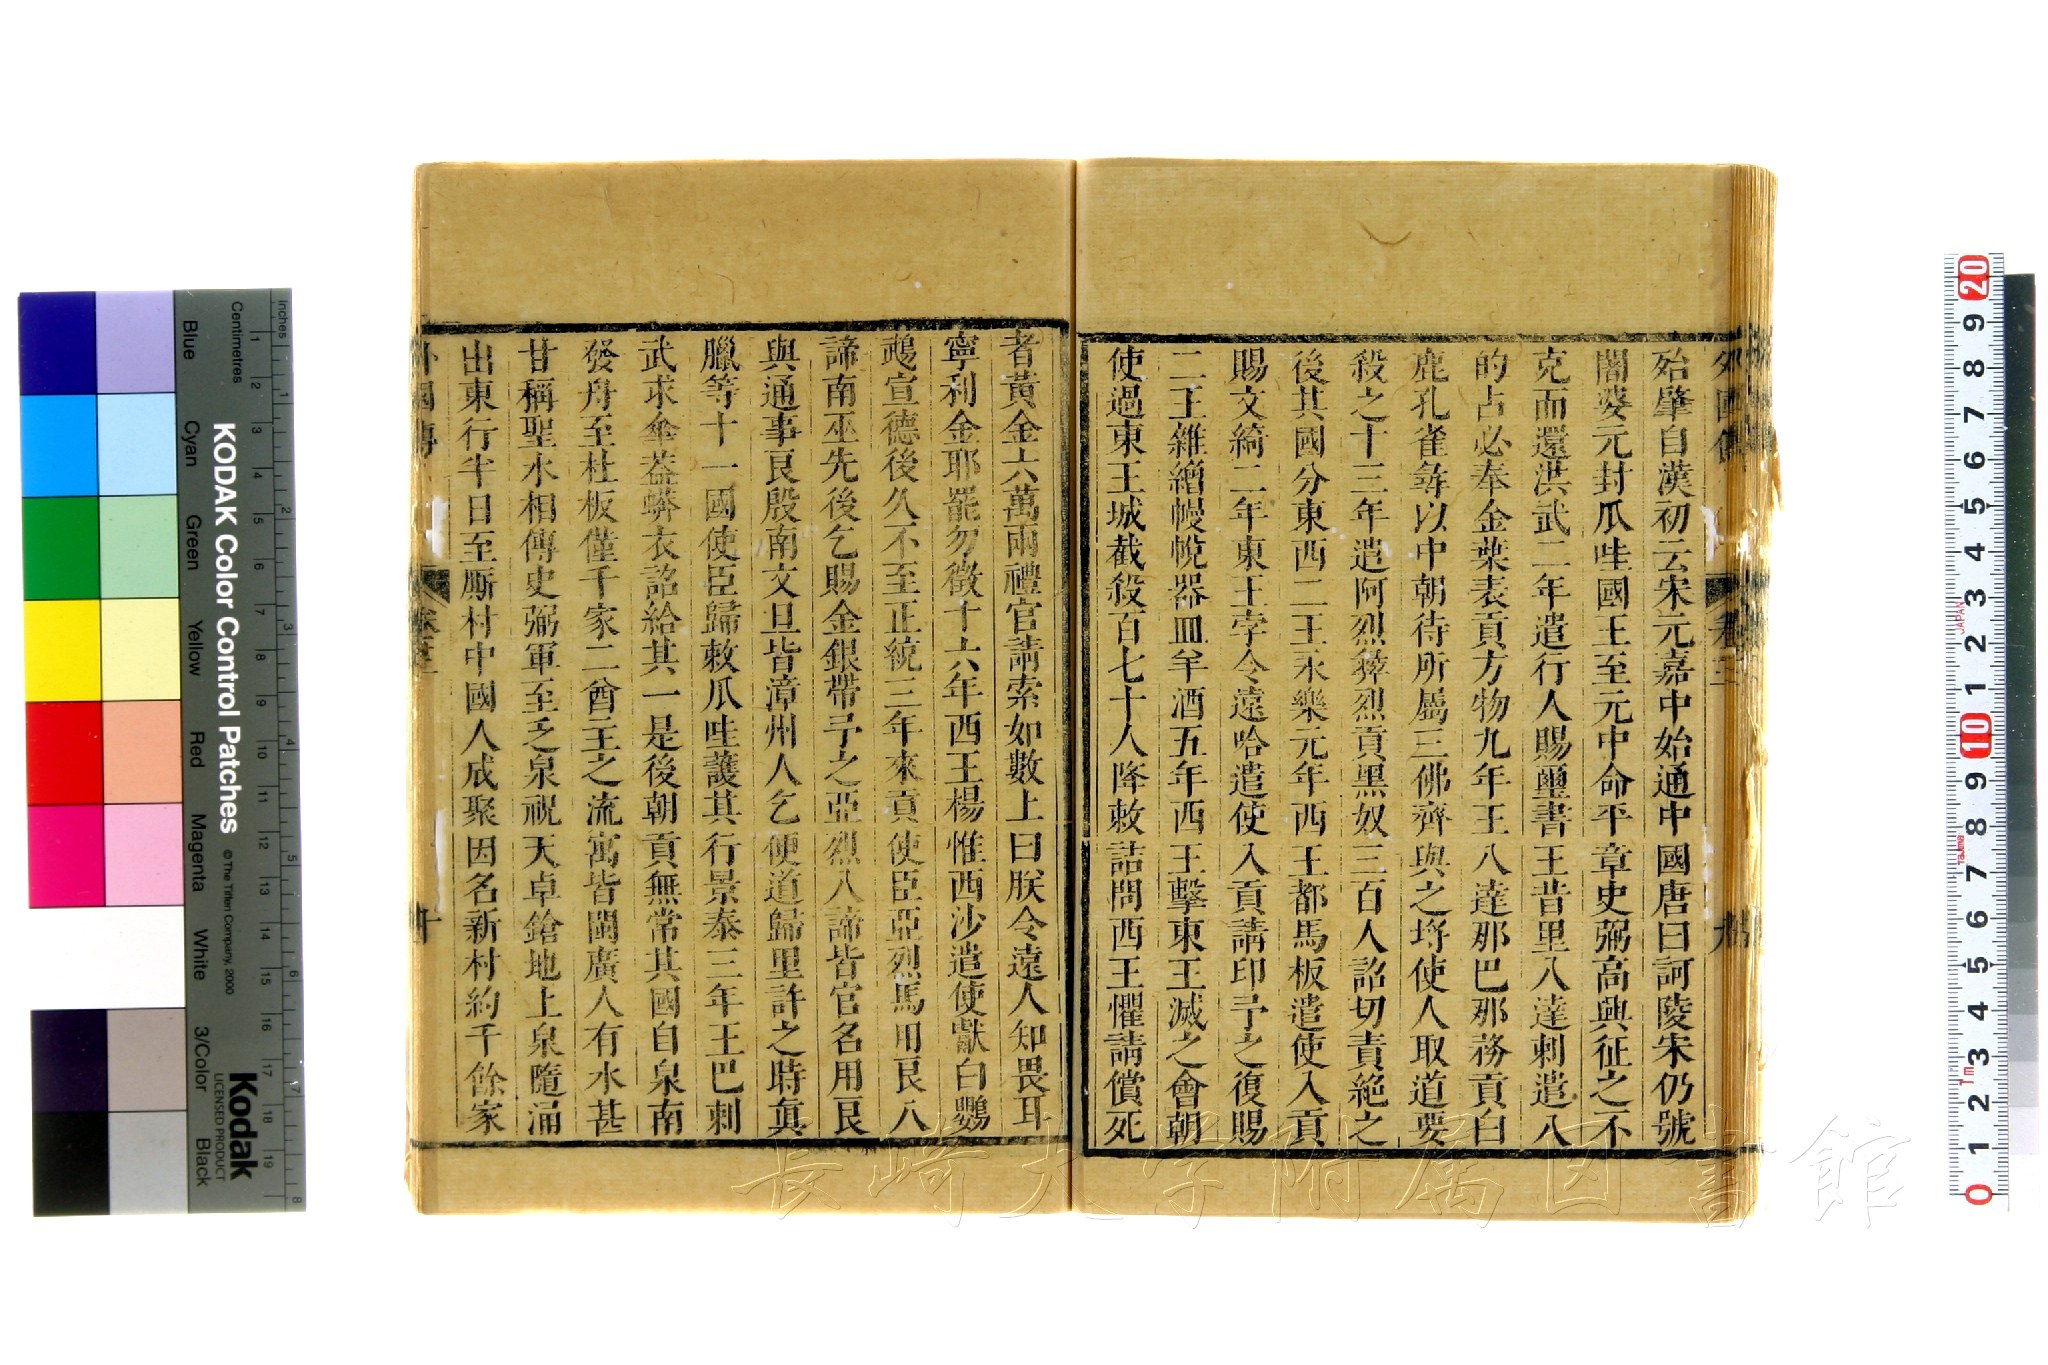 外國傳
卷三
殆肇自漢初云宋元嘉中始通中國唐曰訶陵宋仍號
闍婆元封瓜哇國王至元中命平章史弼高興征之不
克而還洪武二年遣行人賜璽書王昔里八達剌遣八
的占必奉金葉表貢方物九年王八達那巴那務貢白
鹿孔雀尋以中朝待所屬三佛齊與之埒使人取道要
殺之十三年遣阿烈彝烈貢黑奴三百人詔切責絕之
後其國分東西二王永樂元年西王都馬板遣使入貢
賜文綺二年東王孛令達哈遣使入貢請印予之復賜
二王雜繒幔帨器皿羊酒五年西王擊東王滅之會朝
使過東王城截殺百七十人降敕詰問西王懼請償死
者黃金六萬兩禮官請索如數上曰朕令遠人知畏耳
寧利金耶罷勿徵十六年西王楊惟西沙遣使獻白鸚
鵡宣德後久不至正統三年來貢使臣亞烈馬用良八
諦南巫先後乞賜金銀帶予之亞烈八諦皆官名用良
與通事良殷南文旦皆漳州人乞便道歸里許之時真
臘等十一國使臣歸敕瓜哇護其行景泰三年王巴剌
武求傘葢蟒衣詔給其一是後朝貢無常其國自泉南
發舟至杜板僅千家二酋主之流寓皆閩廣人有水甚
甘稱聖水相傳史弼軍至乏泉祝天卓鎗地上泉隨涌
出東行半日至廝村中國人成聚因名新村約千餘家
外國傳
卷三
十
KODAK Color Control Patches
© The Tiffen Company, 2000
Kodak
LICENSED PRODUCT
Inches
Centimetres
Blue
Cyan
Green
Yellow
Red
Magenta
White
3/Color
Black
1 2 3 4 5 6 7 8 9 10 11 12 13 14 15 16 17 18 19
1 2 3 4 5 6 7 8
20 9 8 7 6 5 4 3 2 1 10 9 8 7 6 5 4 3 2 1 0
JAPAN
Tajima
1m
長崎大学附属図書館